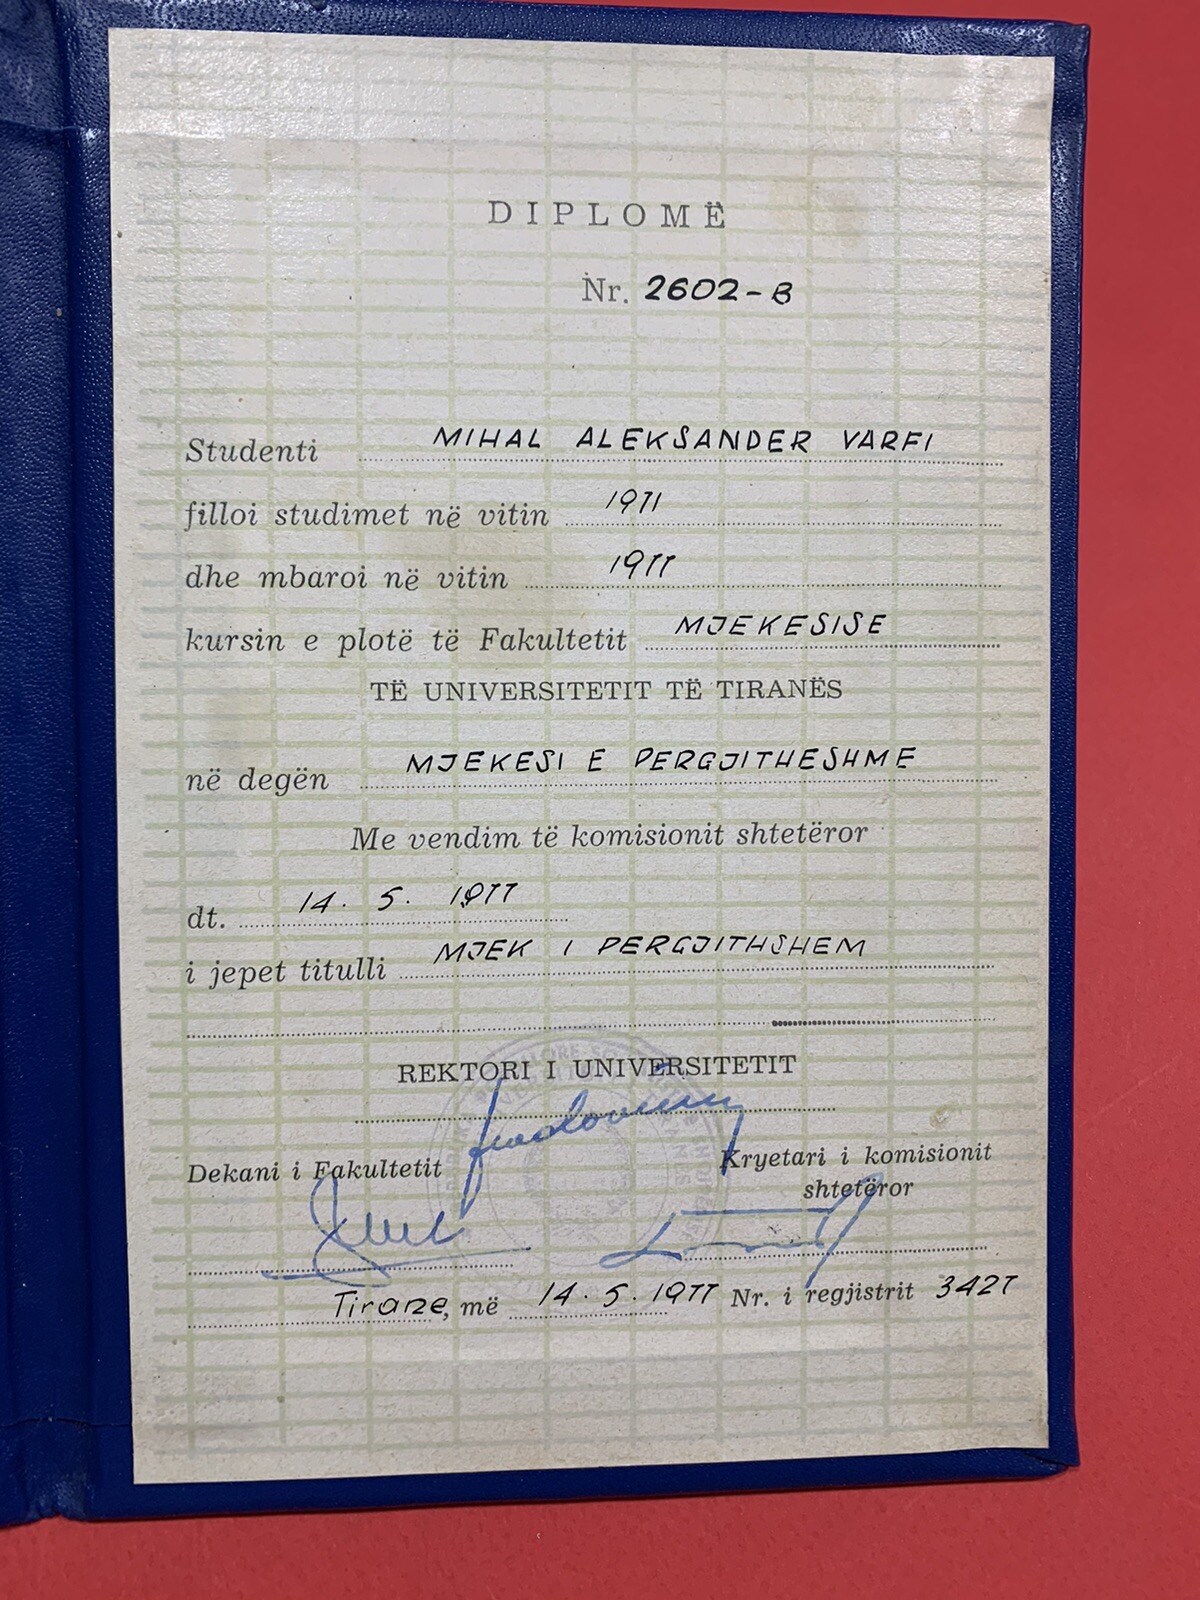 DIPLOMË
Nr. 2602-B
Studenti MIHAL ALEKSANDER VARFI
filloi studimet në vitin 1971
dhe mbaroi në vitin 1977
kursin e plotë të Fakultetit MJEKESISE
TË UNIVERSITETIT TË TIRANËS
në degën MJEKESI E PERGJITHESHME
Me vendim të komisionit shtetëror
dt. 14. 5. 1977
i jepet titulli MJEK I PERGJITHSHEM
REKTORI I UNIVERSITETIT
Dekani i Fakultetit
Kryetari i komisionit
shtetëror
Tirane, më 14.5.1977 Nr. i regjistrit 3427